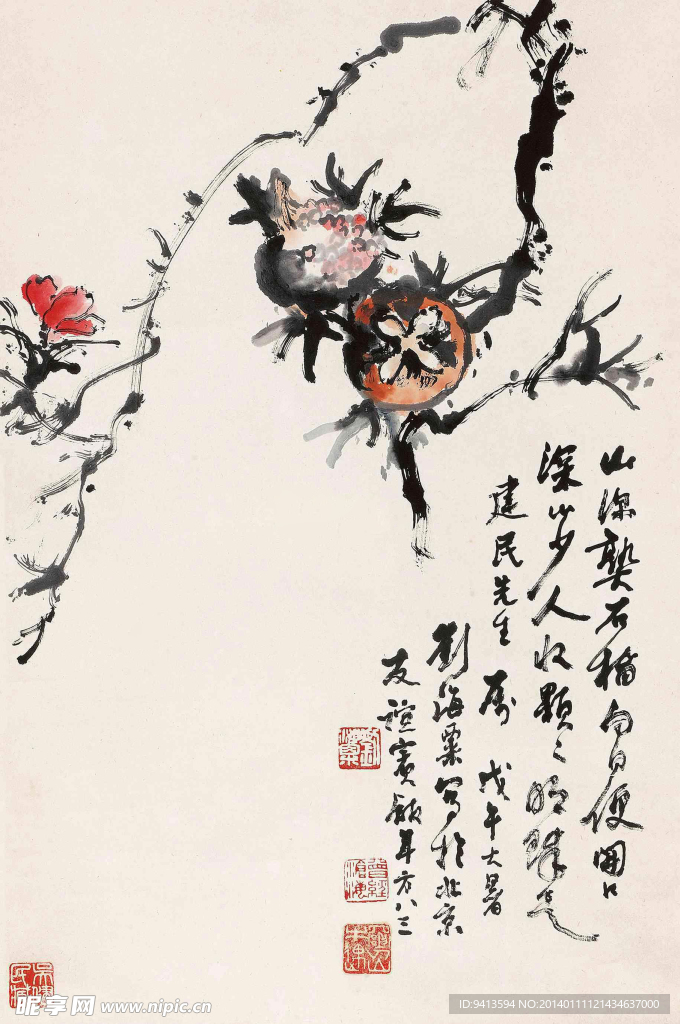 山深熟石榴向日便開口
深山少人收顆〻明珠走
建民先生屬 戊午大暑
劉海粟寫於北京
友誼賓館年方八三
昵享网 www.nipic.cn
ID:9413594 NO:20140111121434637000